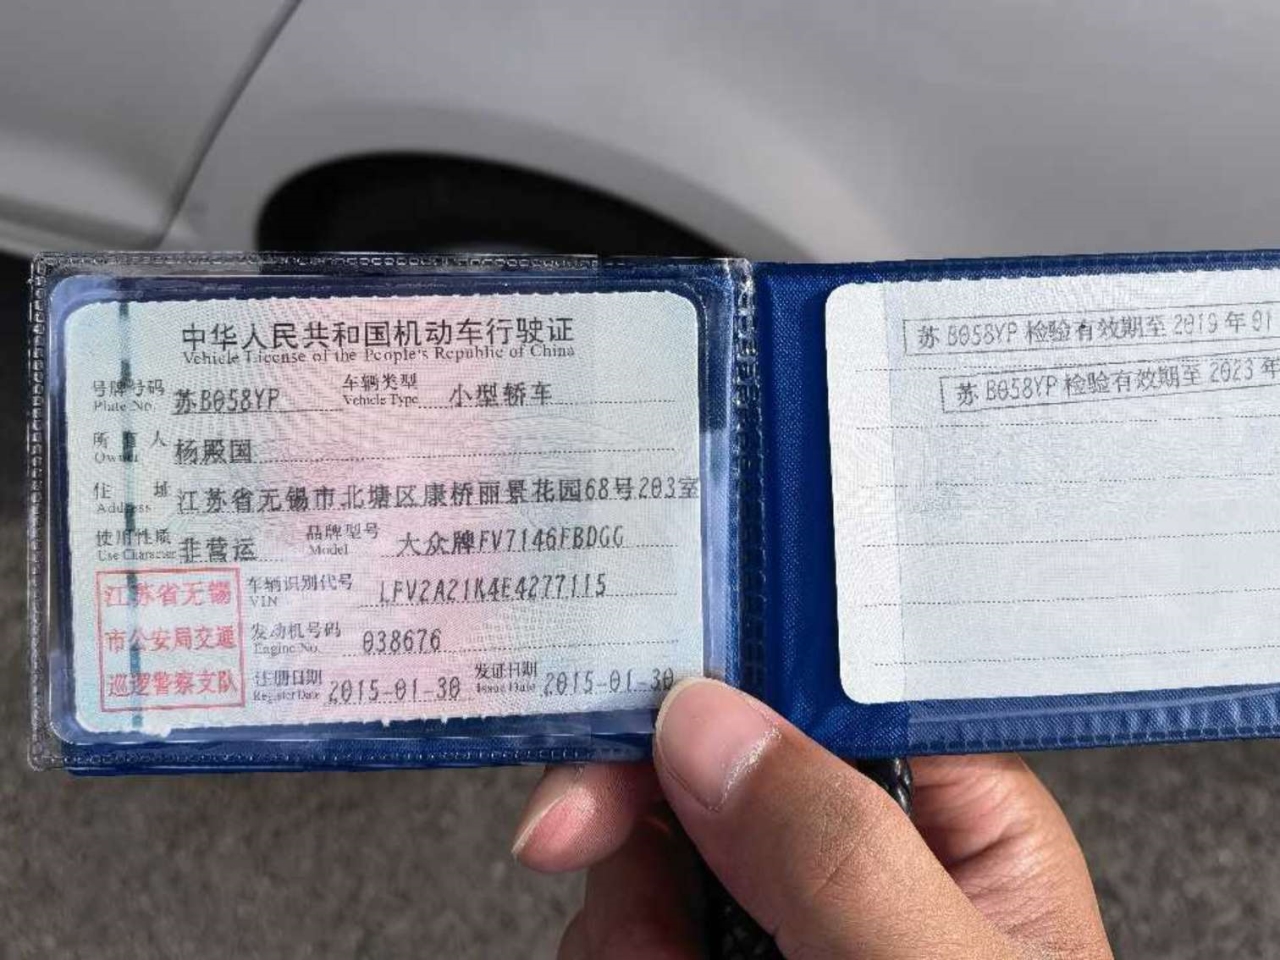 中华人民共和国机动车行驶证
Vehicle License of the People's Republic of China
号牌号码 苏B058YP 车辆类型 小型轿车
Plate No. Vehicle Type
所有人 杨殿国
Owner
住址 江苏省无锡市北塘区康桥丽景花园68号203室
Address
使用性质 非营运 品牌型号 大众牌FV7146FBDGG
Use Character Model
车辆识别代号 LFV2A21K4E4277115
VIN
发动机号码 038676
Engine No.
注册日期 2015-01-30 发证日期 2015-01-30
Register Date Issue Date
江苏省无锡
市公安局交通
巡逻警察支队
苏B058YP 检验有效期至 2019 年 01
苏B058YP 检验有效期至 2023 年